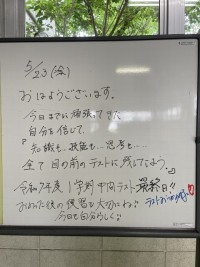 5/23(金)
おはようございます。
今日までに頑張ってきた
自分を信じて、
『知識も…技能も…思考も…
全て目の前のテストに残してこよう。
令和7年度1学期中間テスト最終日!!
おわった後の復習も大切にね!!
今日も自分らしく